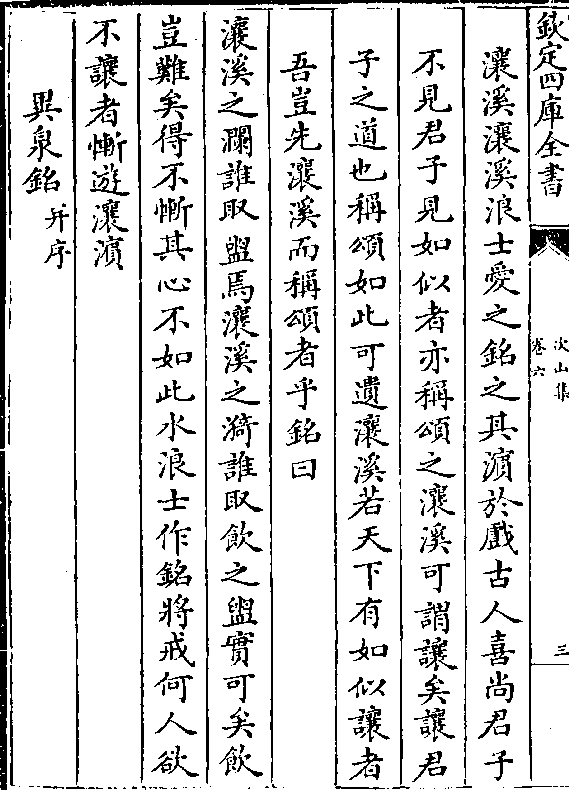 欽定四庫全書
次山集
卷六
三
瀼溪瀼溪浪士愛之銘之其濵於戲古人喜尚君子
不見君子見如似者亦稱頌之瀼溪可謂讓矣讓君
子之道也稱頌如此可遺瀼溪若天下有如似讓者
吾豈先瀼溪而稱頌者乎銘曰
瀼溪之瀾誰取盥焉瀼溪之漪誰取飲之盥實可矣飲
豈難矣得不慚其心不如此水浪士作銘將戒何人欲
不讓者慚遊瀼濵
異泉銘 并序